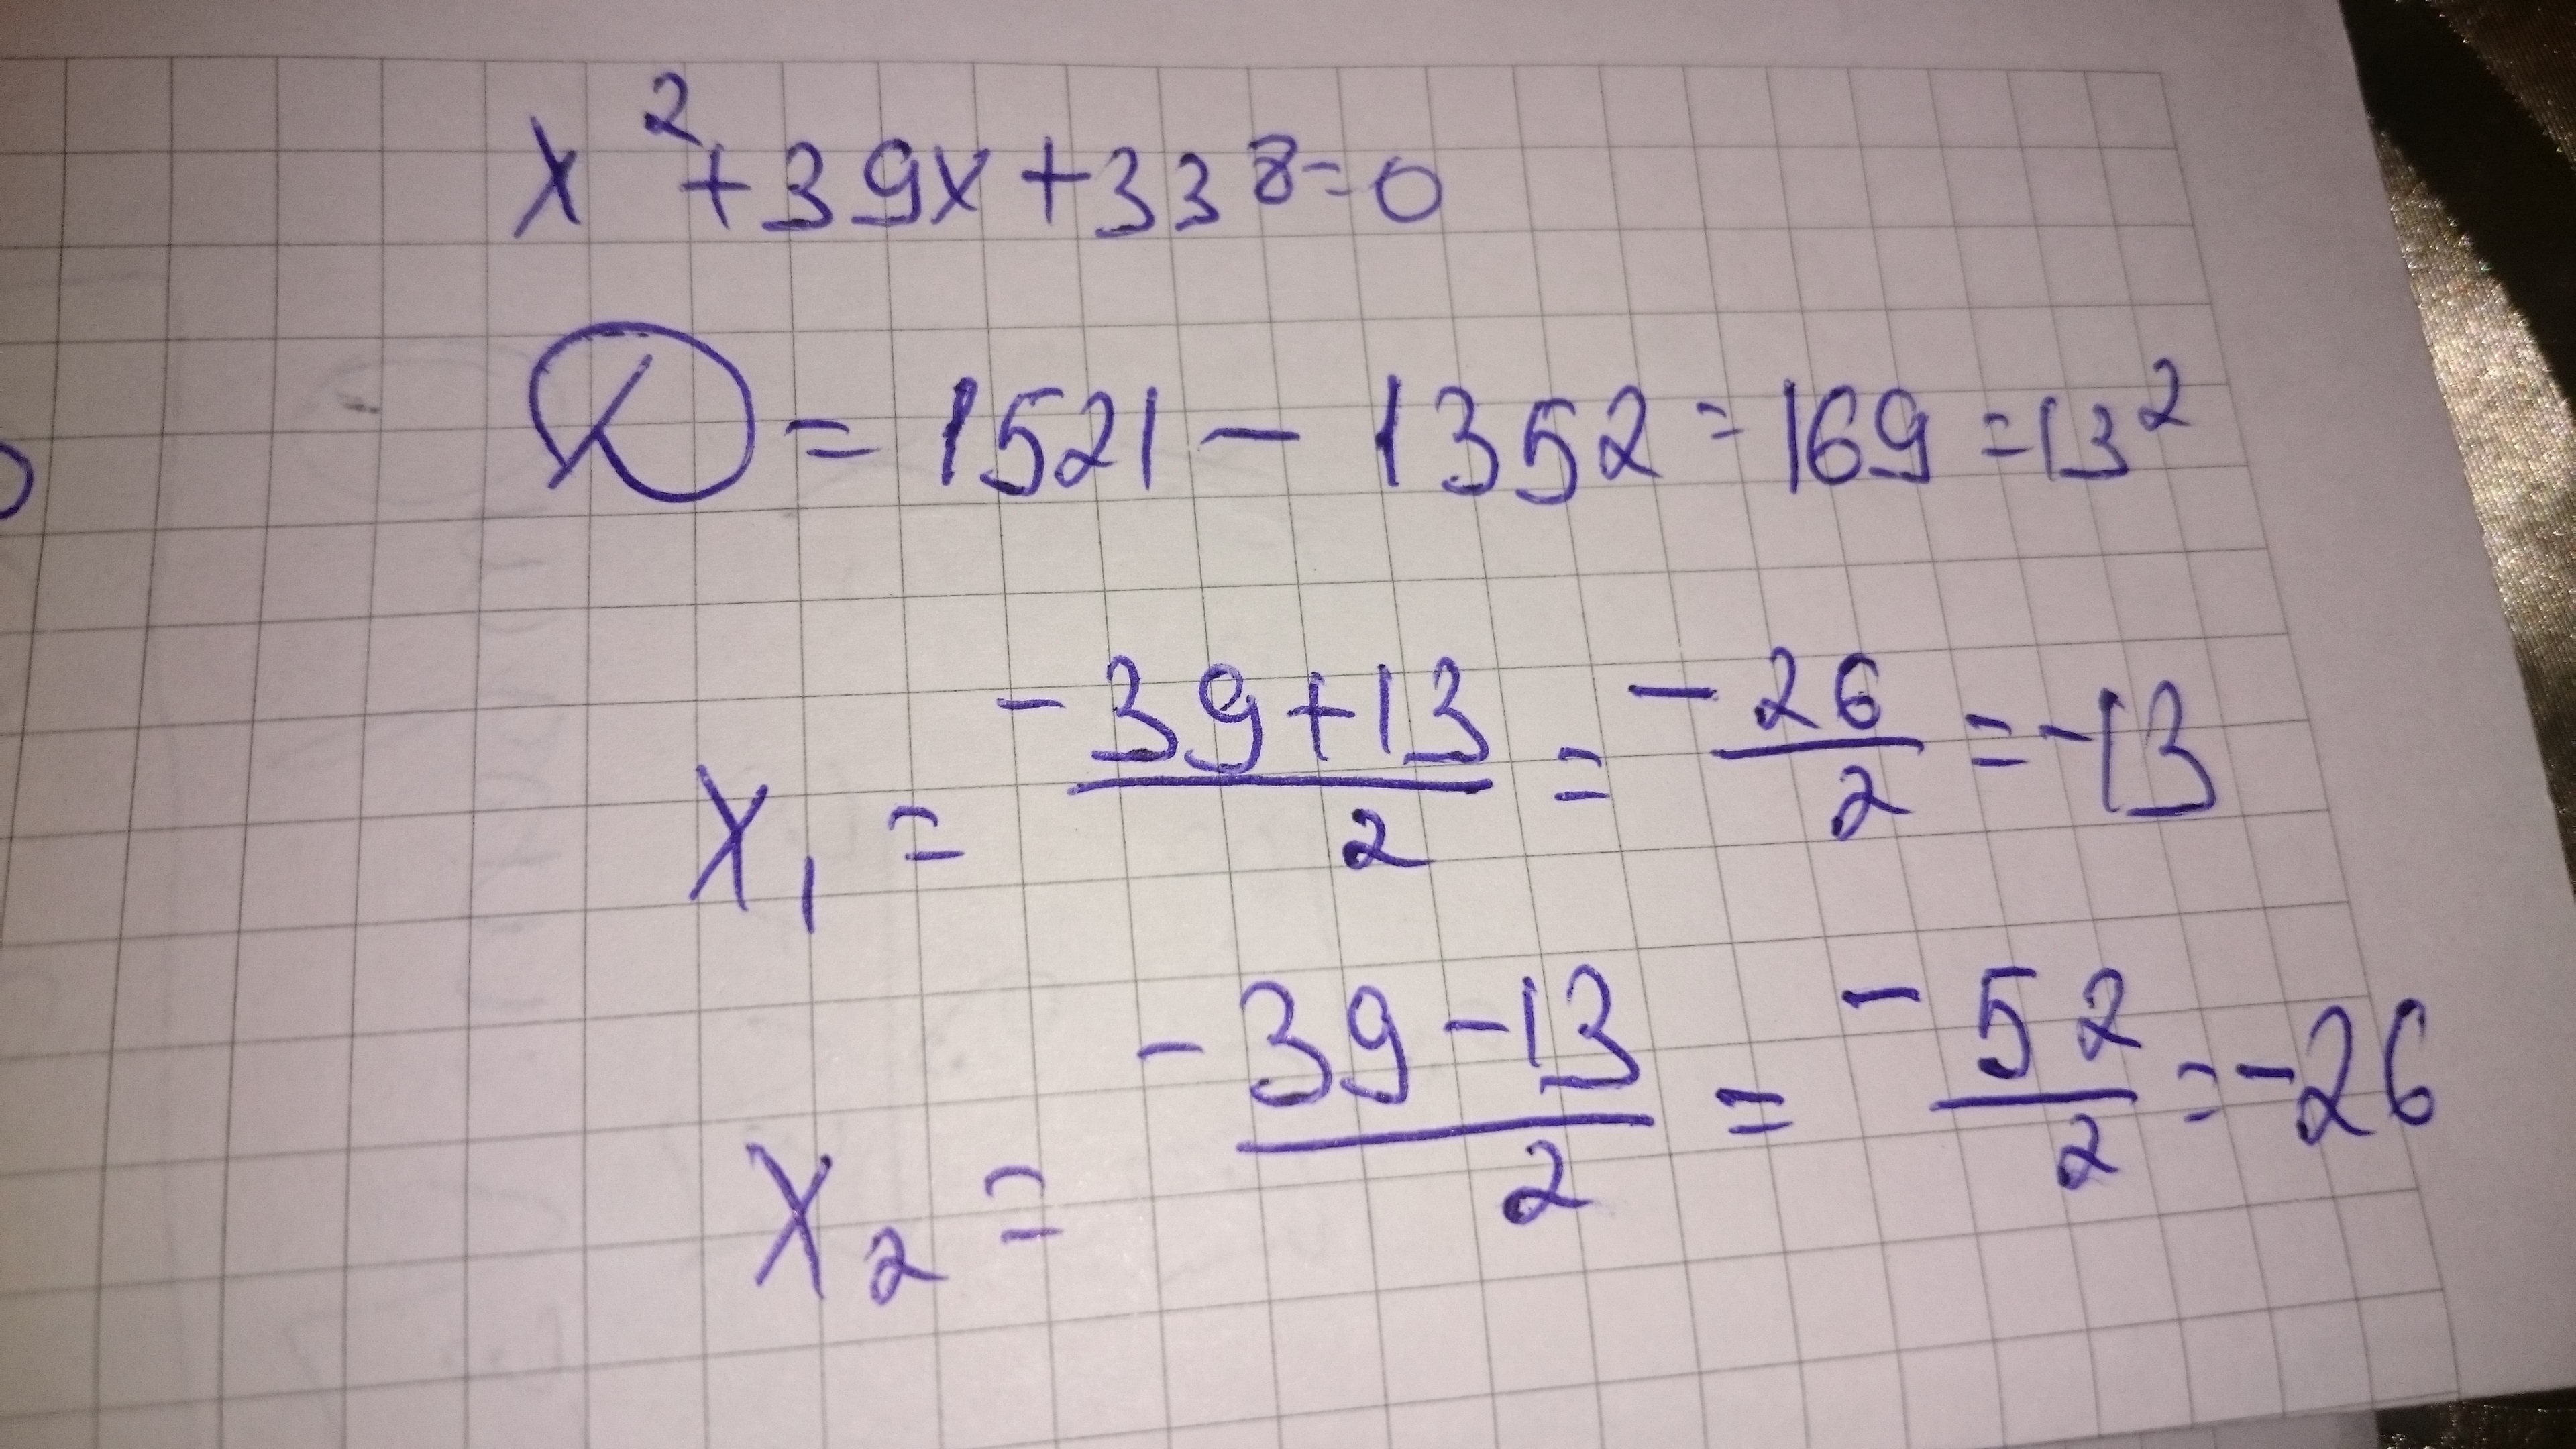 x² + 39x + 338 = 0
D = 1521 - 1352 = 169 = 13²
x₁ = (-39 + 13)/2 = -26/2 = -13
x₂ = (-39 - 13)/2 = -52/2 = -26